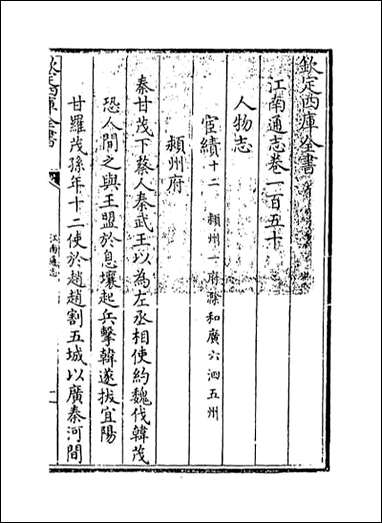 欽定四庫全書
江南通志卷一百五十
人物志
宦績十二 潁州一府滁和廣六泗五州
潁州府
秦甘茂下蔡人秦武王以為左丞相使約魏伐韓茂
恐人間之與王盟於息壤起兵擊韓遂拔宜陽
甘羅茂孫年十二使於趙趙割五城以廣秦河間
欽定四庫全書
江南通志